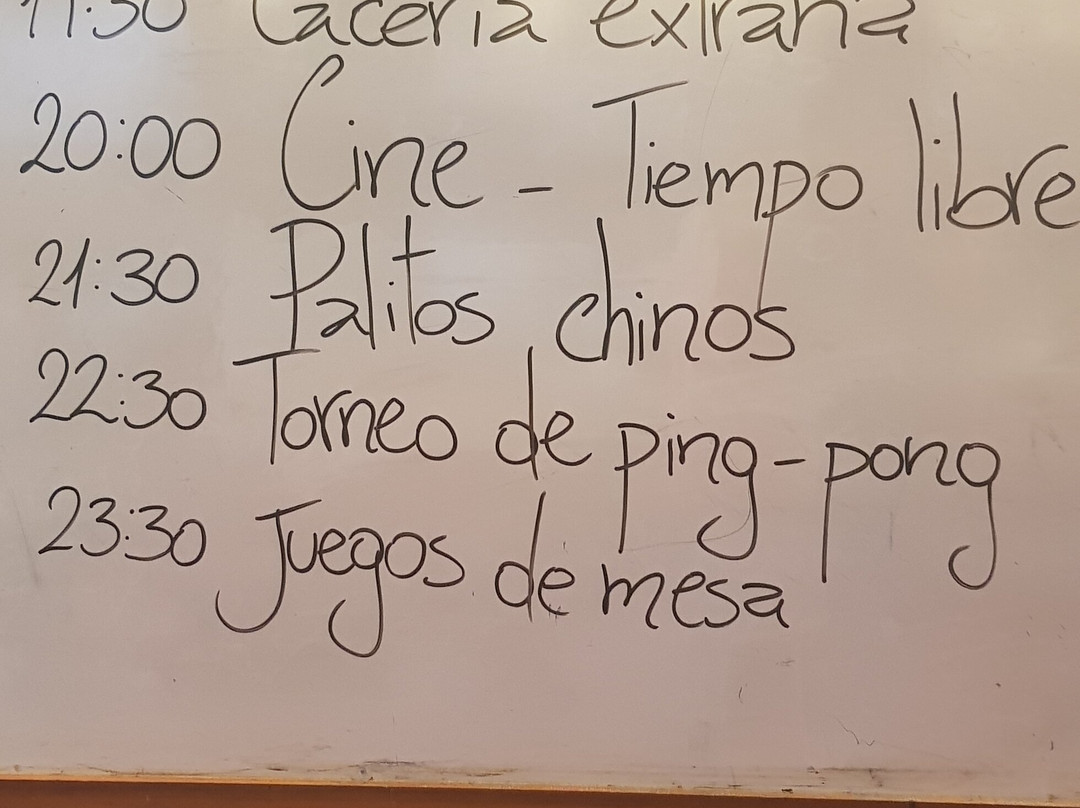 11:30 Cacería extraña
20:00 Cine - Tiempo libre
21:30 Palitos chinos
22:30 Torneo de ping-pong
23:30 Juegos de mesa